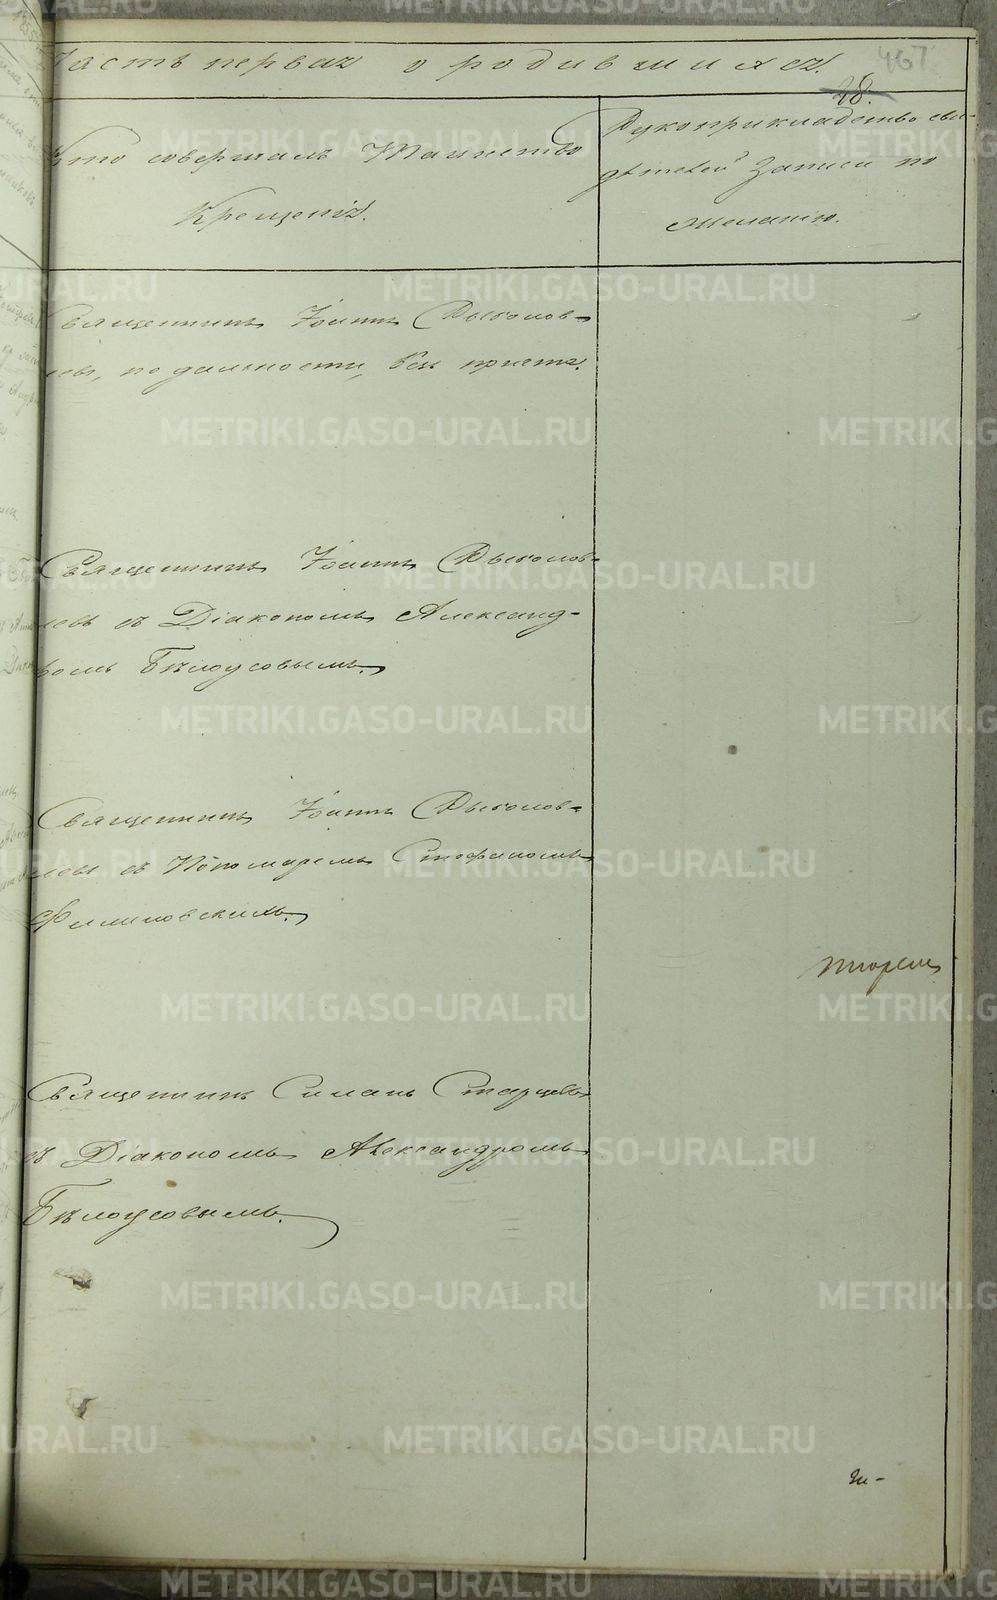 Часть первая о родившихся.
467
28.
Кто совершалъ Таинство
Крещенія.
Рукоприкладство сви-
дѣтелей записи по
желанію.
Священникъ Іоаннъ
по дальности, безъ причта.
Священникъ Іоаннъ
съ Діакономъ Александ-
ромъ Бѣлоусовымъ.
Священникъ Іоаннъ
съ Пономаремъ Стефаномъ
Филиповскимъ.
Священникъ Симонъ Старцевъ
съ Діакономъ Александромъ
Бѣлоусовымъ.
METRIKI.GASO-URAL.RU